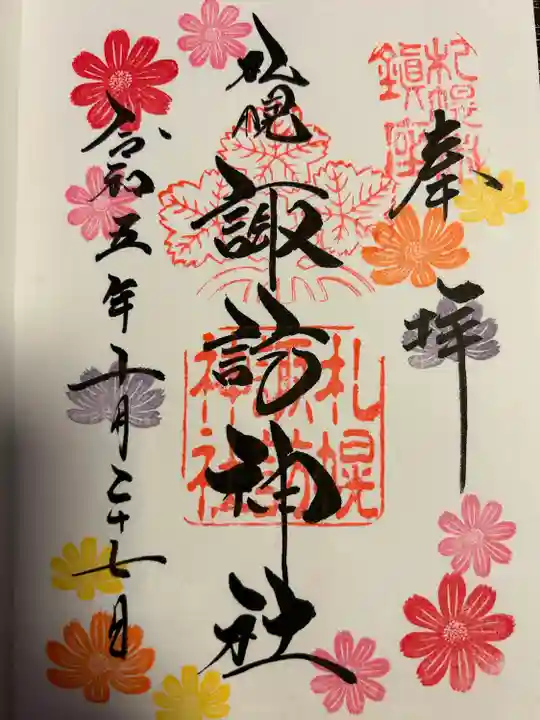 奉拝
札幌
諏訪神社
札幌諏訪神社
令和五年十月二十七日